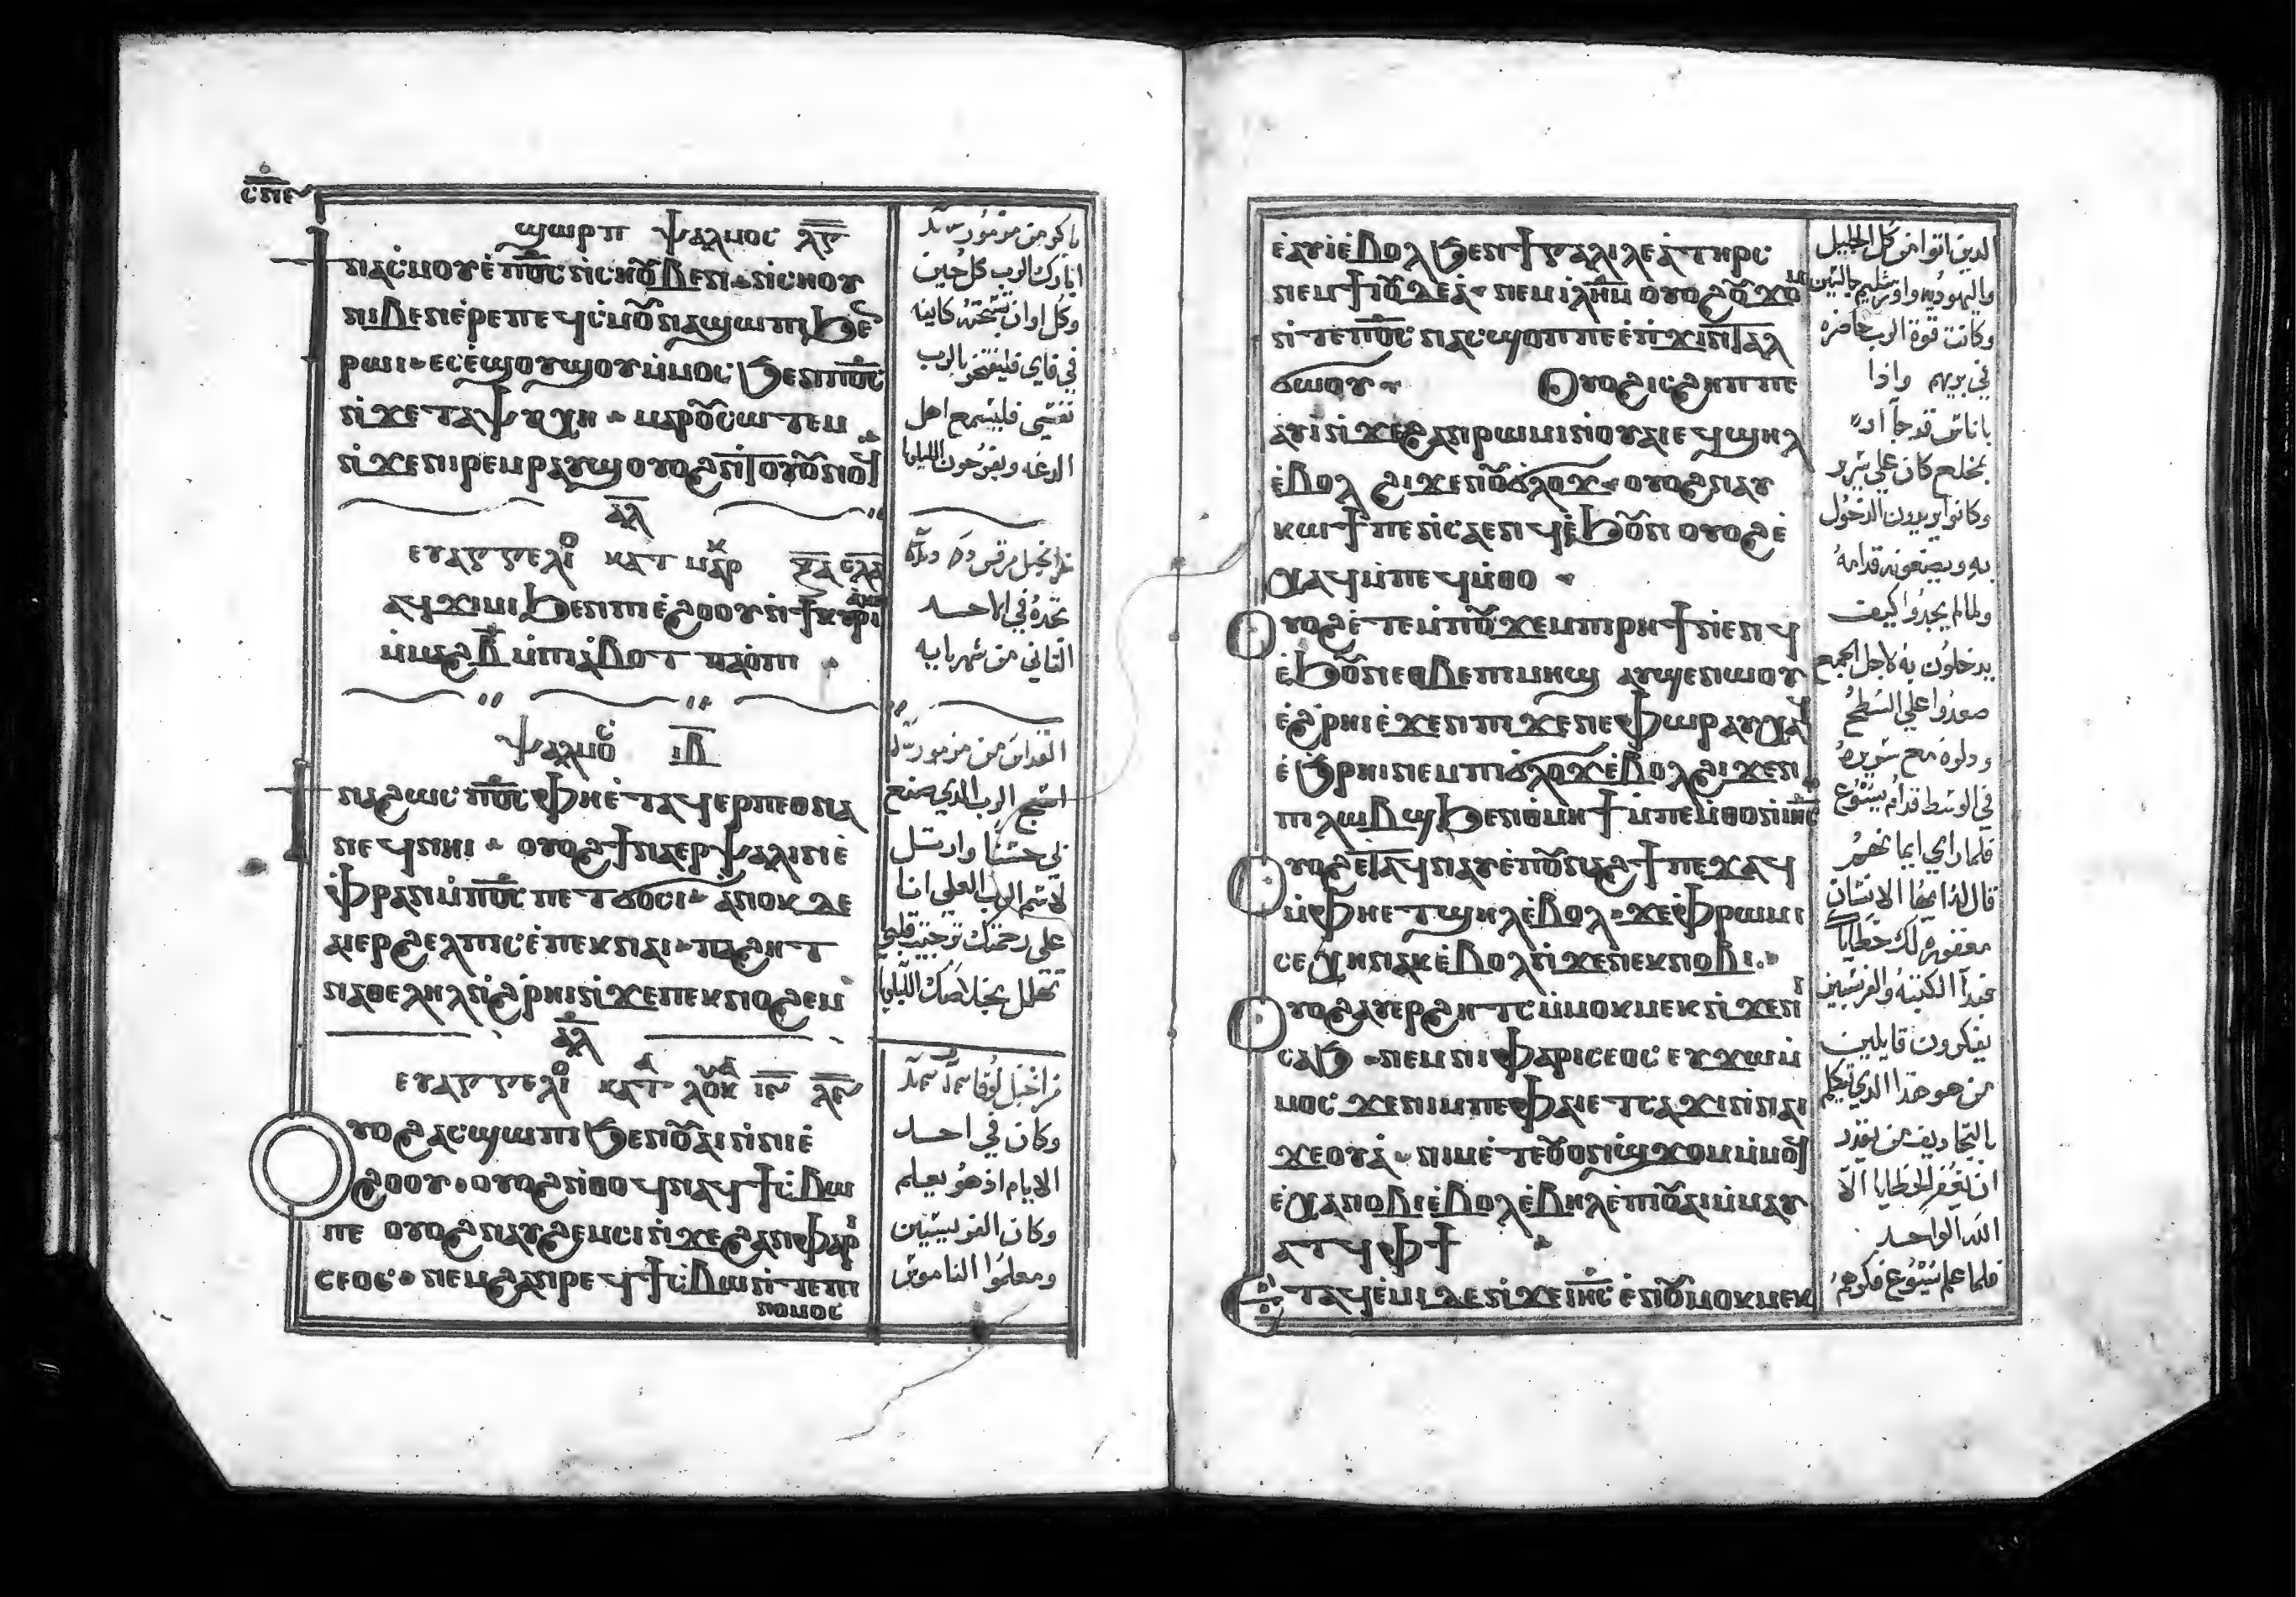 ϣⲱⲣⲡ ⲯⲁⲗⲙⲟⲥ ⲗⲅ
ϯⲛⲁⲥⲙⲟⲩ ⲉⲡⲟ̅ⲥ̅ ⲛ̀ⲥⲏⲟⲩ ⲃⲉⲛ ⲛ̀ⲥⲏⲟⲩ
ⲛⲓⲃⲉⲛ ⲉ̀ⲣⲉ ⲡⲉϥⲥ̀ⲙⲟⲩ ⲛⲁϣⲱⲡⲓ ϧⲉⲛ
ⲣⲱⲓ ⲉⲥⲉ̀ϣⲟⲩϣⲟⲩ ⲙ̀ⲙⲟⲥ ϧⲉⲛ ⲡⲟ̅ⲥ̅
ⲛ̀ϫⲉ ⲧⲁⲯⲩⲭⲏ ⲙⲁⲣⲟⲩⲥⲱⲧⲉⲙ
ⲛ̀ϫⲉ ⲛⲓⲣⲉⲙⲣⲁⲩϣ ⲟⲩⲟϩ ⲛ̀ⲧⲟⲩⲟⲩⲛⲟϥ
ⲁⲗ
ⲉⲩⲁⲅⲅⲉⲗⲓⲟ ⲕⲁⲧ ⲙⲁⲣⲕ
ⲁϥϫⲓⲙⲓ ϧⲉⲛ ⲡⲓⲉ̀ϩⲟⲟⲩ ⲛ̀ϯⲕⲩⲣⲓⲁⲕⲏ
ⲙ̀ⲙⲁϩⲃ̅ ⲙ̀ⲡⲓⲁ̀ⲃⲟⲧ ⲡⲁⲟⲡⲓ
ⲯⲁⲗⲙⲟⲥ ⲓⲃ
ϯⲛⲁϩⲱⲥ ⲡⲟ̅ⲥ̅ ⲫⲏⲉ̀ⲧⲁϥⲉⲣ ⲡⲉⲑⲛⲁ
ⲛⲉϥ ⲛⲏⲓ ⲟⲩⲟϩ ϯⲛⲁⲉⲣⲯⲁⲗⲓⲛ ⲉ̀
ⲫⲣⲁⲛ ⲙ̀ⲡⲟ̅ⲥ̅ ⲡⲉⲧϭⲟⲥⲓ ⲁ̀ⲛⲟⲕ ⲇⲉ
ⲁⲓⲉⲣϩⲉⲗⲡⲓⲥ ⲉ̀ⲡⲉⲕⲛⲁⲓ ⲡⲁϩⲏⲧ
ⲛⲁⲑⲉⲗⲏⲗ ⲛ̀ϩ̀ⲣⲏⲓ ⲛ̀ϫⲉ ⲡⲉⲕⲛⲟϩⲉⲙ
ⲁⲗ
ⲉⲩⲁⲅⲅⲉⲗⲓⲟ ⲕⲁⲧⲁ ⲗⲟⲩⲕ
ⲟⲩⲟϩ ⲁⲥϣⲱⲡⲓ ϧⲉⲛ ⲟⲩⲁⲓ ⲛ̀ⲛⲓⲉ̀
ϩⲟⲟⲩ ⲟⲩⲟϩ ⲛ̀ⲑⲟϥ ⲛⲁϥϯⲥ̀ⲃⲱ
ⲡⲉ ⲟⲩⲟϩ ⲛⲁⲩϩⲉⲙⲥⲓ ⲛ̀ϫⲉ ϩⲁⲛⲫⲁⲣⲓ
ⲥⲉⲟⲥ ⲛⲉⲙ ϩⲁⲛⲣⲉϥϯⲥ̀ⲃⲱ ⲛ̀ⲧⲉ ⲡⲓ
ⲛⲟⲙⲟⲥ
ابارك الرب كل حين
وكل اوان تسبحته كاينه
في فاي فليفتخر بالرب
نفسي فليسمع اهل
الدعه ويفرحون الليلويا
تجده في الاحد
الثاني من شهر بابه
اسبح الرب الذي صنع
لي حسنا وارتل
لاسم الرب العلي انا
على رحمتك توكلت قلبي
يتهلل بخلاصك الليلويا
وكان في احد
الايام اذ هو يعلم
وكان الفريسيين
ومعلموا الناموس
ⲉ̀ⲁⲩⲓ̀ ⲉ̀ⲃⲟⲗ ϧⲉⲛ ϯⲅⲁⲗⲓⲗⲉⲁ̀ ⲧⲏⲣⲥ
ⲛⲉⲙ ϯⲓⲟⲩⲇⲉⲁ̀ ⲛⲉⲙ ⲓⲗ̅ⲏ̅ⲙ̅ ⲟⲩⲟϩ ⲟⲩϫⲟⲙ
ⲛ̀ⲧⲉ ⲡⲟ̅ⲥ̅ ⲛⲁⲥϣⲟⲡ ⲡⲉ ⲉ̀ⲡ̀ϫⲓⲛⲧⲁⲗ
ϭⲱⲟⲩ Ⲟⲩⲟϩ ⲓⲥ ϩⲏⲡⲡⲉ
ⲁⲩⲓ̀ ⲛ̀ϫⲉ ϩⲁⲛⲣⲱⲙⲓ ⲛ̀ⲟⲩⲁⲓ ⲉϥϣⲏⲗ
ⲉ̀ⲃⲟⲗ ϩⲓϫⲉⲛ ⲟⲩϭⲗⲟϫ ⲟⲩⲟϩ ⲛⲁⲩ
ⲕⲱϯ ⲡⲉ ⲛ̀ⲥⲁ ⲉⲛϥ ⲉ̀ϧⲟⲩⲛ ⲟⲩⲟϩ ⲉ̀
ⲭⲁϥ ⲙ̀ⲡⲉϥⲙ̀ⲑⲟ
Ⲟⲩⲟϩ ⲉ̀ⲧⲉⲙ̀ⲡⲟⲩϫⲉⲙ ⲡⲓⲣⲏϯ ⲛ̀ⲉⲛϥ
ⲉ̀ϧⲟⲩⲛ ⲉⲑⲃⲉ ⲡⲓⲙⲏϣ ⲁⲩϣⲉⲛⲱⲟⲩ
ⲉ̀ϩ̀ⲣⲏⲓ ⲉ̀ϫⲉⲛ ⲡⲓϫⲉⲛⲉⲫⲱⲣ ⲁⲩⲭⲁϥ
ⲉ̀ϧ̀ⲣⲏⲓ ⲛⲉⲙ ⲡⲓϭⲗⲟϫ ⲉ̀ⲃⲟⲗ ϩⲓϫⲉⲛ
ⲡⲓⲗⲱⲃϣ ϧⲉⲛ ⲑ̀ⲙⲏϯ ⲙ̀ⲡⲉⲙ̀ⲑⲟ ⲛ̀ⲓⲏ̅ⲥ̅
Ⲟⲩⲟϩ ⲉⲧⲁϥⲛⲁⲩ ⲉ̀ⲡⲟⲩⲛⲁϩϯ ⲡⲉϫⲁϥ
ⲙ̀ⲫⲏⲉⲧϣⲏⲗ ⲉ̀ⲃⲟⲗ ϫⲉ ⲫ̀ⲣⲱⲙⲓ
ⲥⲉⲭⲏ ⲛⲁⲕ ⲉ̀ⲃⲟⲗ ⲛ̀ϫⲉ ⲛⲉⲕⲛⲟⲃⲓ
Ⲟⲩⲟϩ ⲁⲩⲉⲣϩⲏⲧⲥ ⲙ̀ⲙⲟⲕⲙⲉⲕ ⲛ̀ϫⲉ ⲛⲓ
ⲥⲁϧ ⲛⲉⲙ ⲛⲓⲫⲁⲣⲓⲥⲉⲟⲥ ⲉⲩϫⲱ ⲙ̀
ⲙⲟⲥ ϫⲉ ⲛⲓⲙ ⲡⲉ ⲫⲁⲓ ⲉⲧⲥⲁϫⲓ ⲛ̀ⲛⲁⲓ
ϫⲉⲟⲩⲁ̀ ⲛⲓⲙ ⲉ̀ⲧⲉ ⲟⲩⲟⲛ ϣ̀ϫⲟⲙ ⲙ̀ⲙⲟϥ
ⲉ̀ⲭⲁ ⲛⲟⲃⲓ ⲉ̀ⲃⲟⲗ ⲉ̀ⲃⲏⲗ ⲉ̀ⲡⲓⲟⲩⲁⲓ ⲙ̀ⲙⲁⲩ
ⲁⲧϥ ⲫϯ
Ⲉⲧⲁϥⲉ̀ⲙⲓ ⲇⲉ ⲛ̀ϫⲉ ⲓⲏ̅ⲥ̅ ⲉ̀ⲛⲟⲩⲙⲟⲕⲙⲉⲕ
الذين اتوا من كل الجليل
واليهوديه واورشليم جالسين
وكانت قوة الرب حاضره
في بريهم واذا
باناس قد جآ اوا
بمخلع كان على سرير
وكانوا يريدون الدخول
به ويضعونه قدامه
ولما لم يجدوا كيف
يدخلون به لاجل الجمع
صعدوا على السطح
ودلوه مع سريره
في الوسط قدام يسوع
فلما راي ايمانهم
قال له ايها الانسان
مغفوره لك خطاياك
فبدآ الكتبه والفريسيين
يفكرون قايلين
من هو هذا الذي يتكلم
بالتجاديف من يقدر
ان يغفر الخطايا الا
الله الواحد
فلما علم يسوع فكرهم